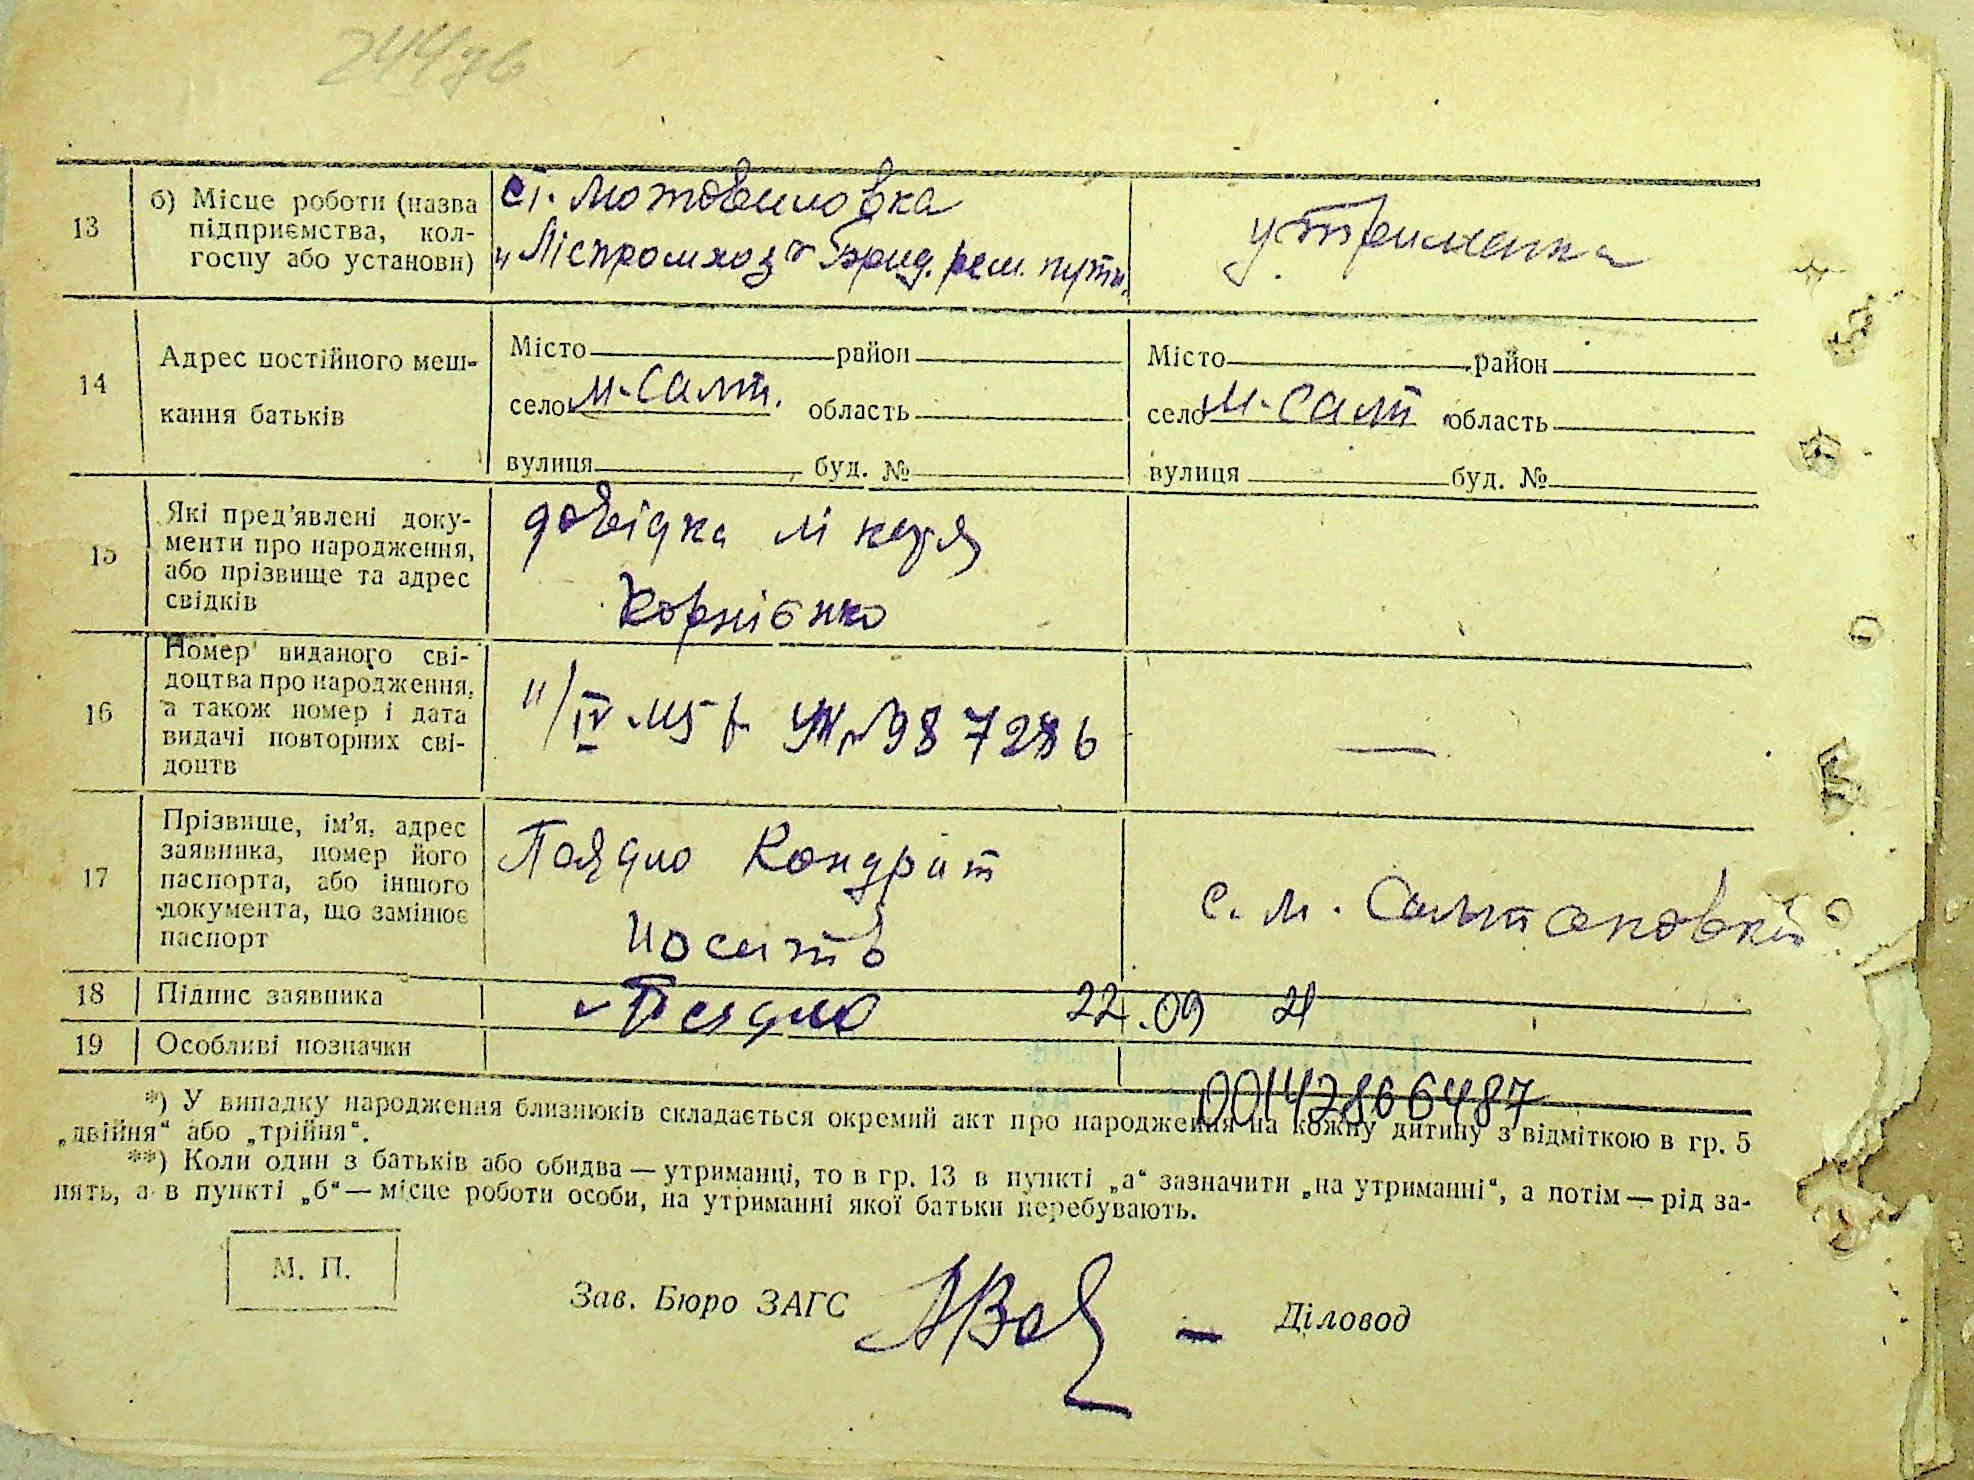 244дв
13
б) Місце роботи (назва
підприємства, кол-
госпу або установи)
ст. Мотовиловка
Ліспромхоз Брид. рем. пути.
утриманка
14
Адрес постійного меш-
кання батьків
Місто район
село М-Салт. область
вулиця буд. №
Місто район
село М-Салт область
вулиця буд. №
15
Які пред'явлені доку-
менти про народження,
або прізвище та адрес
свідків
довідка лікаря
Корнієнко
16
Номер виданого сві-
доцтва про народження,
а також номер і дата
видачі повторних сві-
доцтв
11/IV 987286
—
17
Прізвище, ім'я, адрес
заявника, номер його
паспорта, або іншого
документа, що замінює
паспорт
Поядло Кондрат
с. М. Салтановка
18
Підпис заявника
Поядло
22.09 21
19
Особливі позначки
00147866487
*) У випадку народження близнюків складається окремий акт про народження на кожну дитину з відміткою в гр. 5
„двійня“ або „трійня“.
**) Коли один з батьків або обидва — утриманці, то в гр. 13 в пункті „а“ зазначити „на утриманні“, а потім — рід за-
нять, а в пункті „б“ — місце роботи особи, на утриманні якої батьки перебувають.
М. П.
Зав. Бюро ЗАГС
Діловод